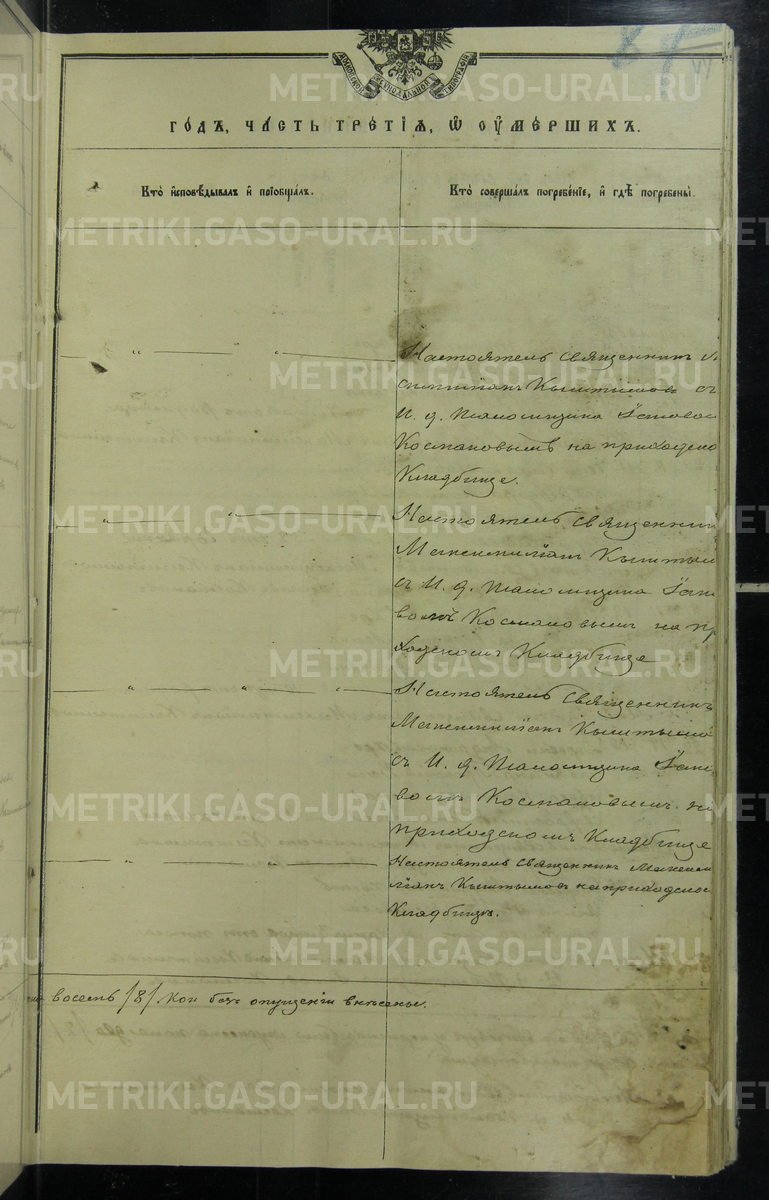 МОСКОВСКОЙ СѴНОДАЛЬНОЙ ТИПОГРАФІИ
ГО́ДЪ, ЧА́СТЬ ТРЕ́ТІѦ, Ѿ ОУ҆МЕ́РШИХЪ.
Кто̀ и҆сповѣ́дывалъ и҆ пріѻбща́лъ.
Кто̀ соверша́лъ погребе́нїе, и҆ гдѣ̀ погребены̀.
— „ — " „ —
Настоятель священникъ
Кыштымовъ съ
И. д. Псаломщика
Космаковымъ на приходско
Кладбище.
— „ — „ —
Настоятель священник
Максимиліанъ Кыштым
съ И. д. Псаломщика
вомъ Космаковымъ на пр
ходскомъ Кладбище
— „ — „ — „ —
Настоятель священникъ
Максимиліанъ Кыштымо
съ И. д. Псаломщика
вомъ Космаковымъ на
приходскомъ Кладбище
— „ — „ —
Настоятель священникъ Максими
ліанъ Кыштымовъ на приходско
Кладбищѣ.
восемь /8/. Кои безъ опущенія внесены.
METRIKI.GASO-URAL.RU